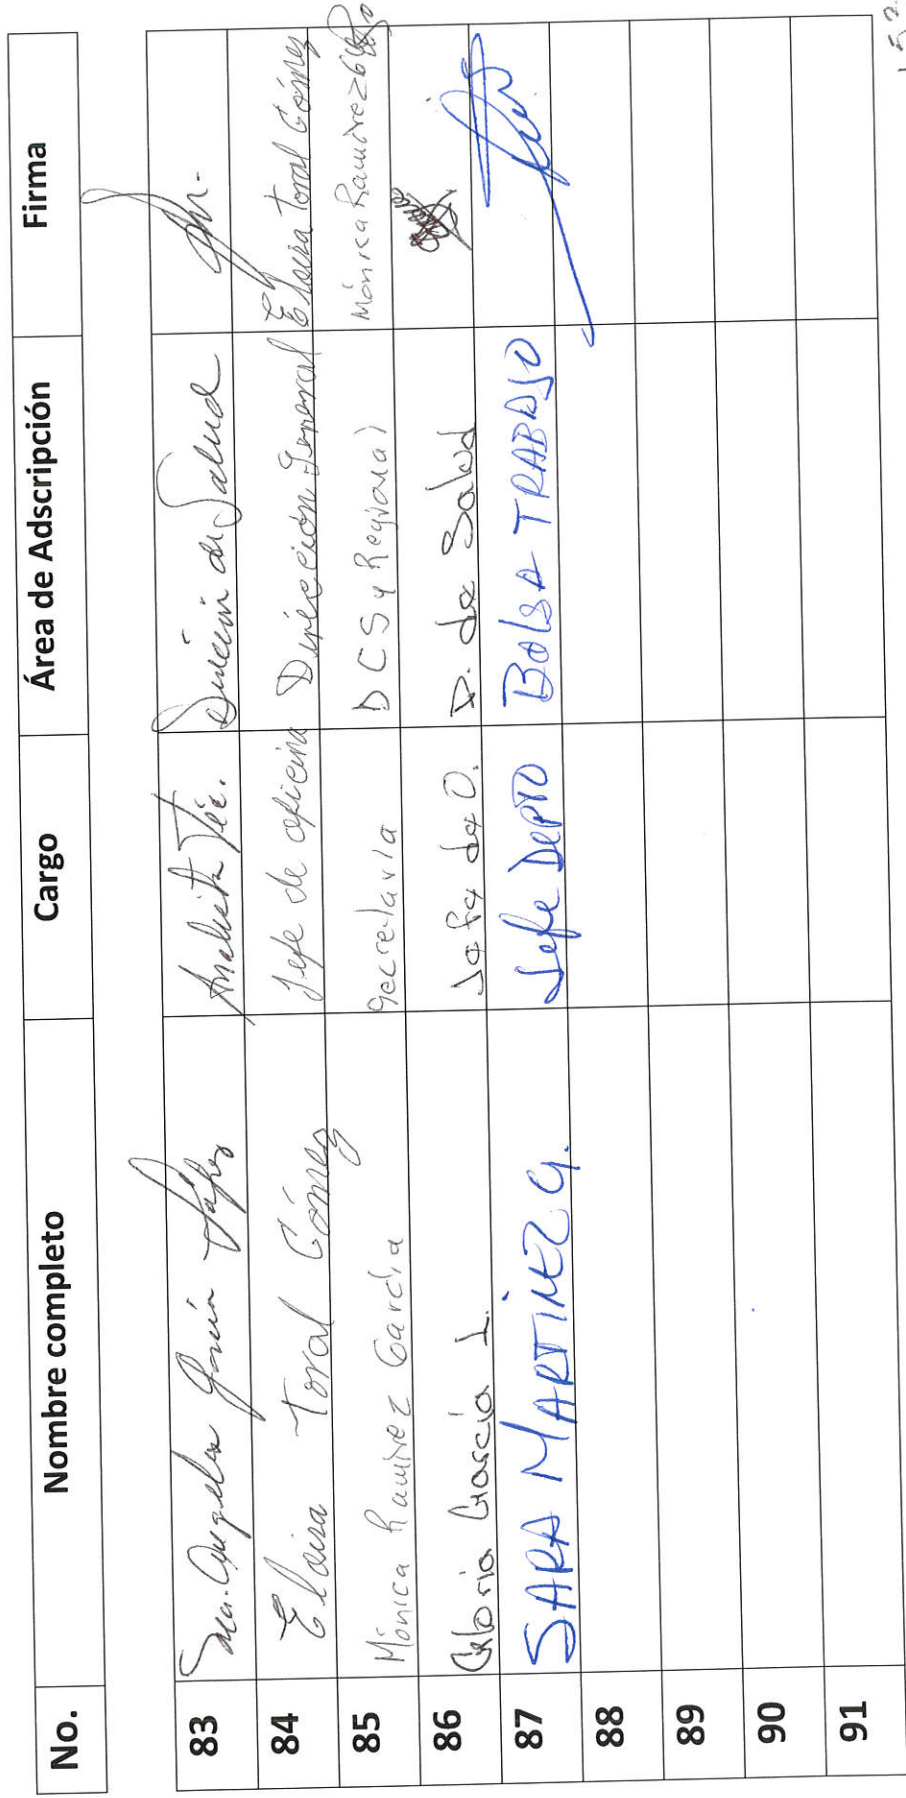 No. Nombre completo Cargo Área de Adscripción Firma
83 Ma. Angeles García López Analista Téc. Dirección de Salud
84 Eloisa Toral Gómez Jefe de oficina Dirección General Eloisa Toral Gómez
85 Mónica Ramirez García Secretaria DCS y Regional Mónica Ramirez G
86 Gloria García L. Jefe de O. D. de Salud
87 SARA MARTINEZ G. Jefe DEPTO BOLSA TRABAJO
88
89
90
91